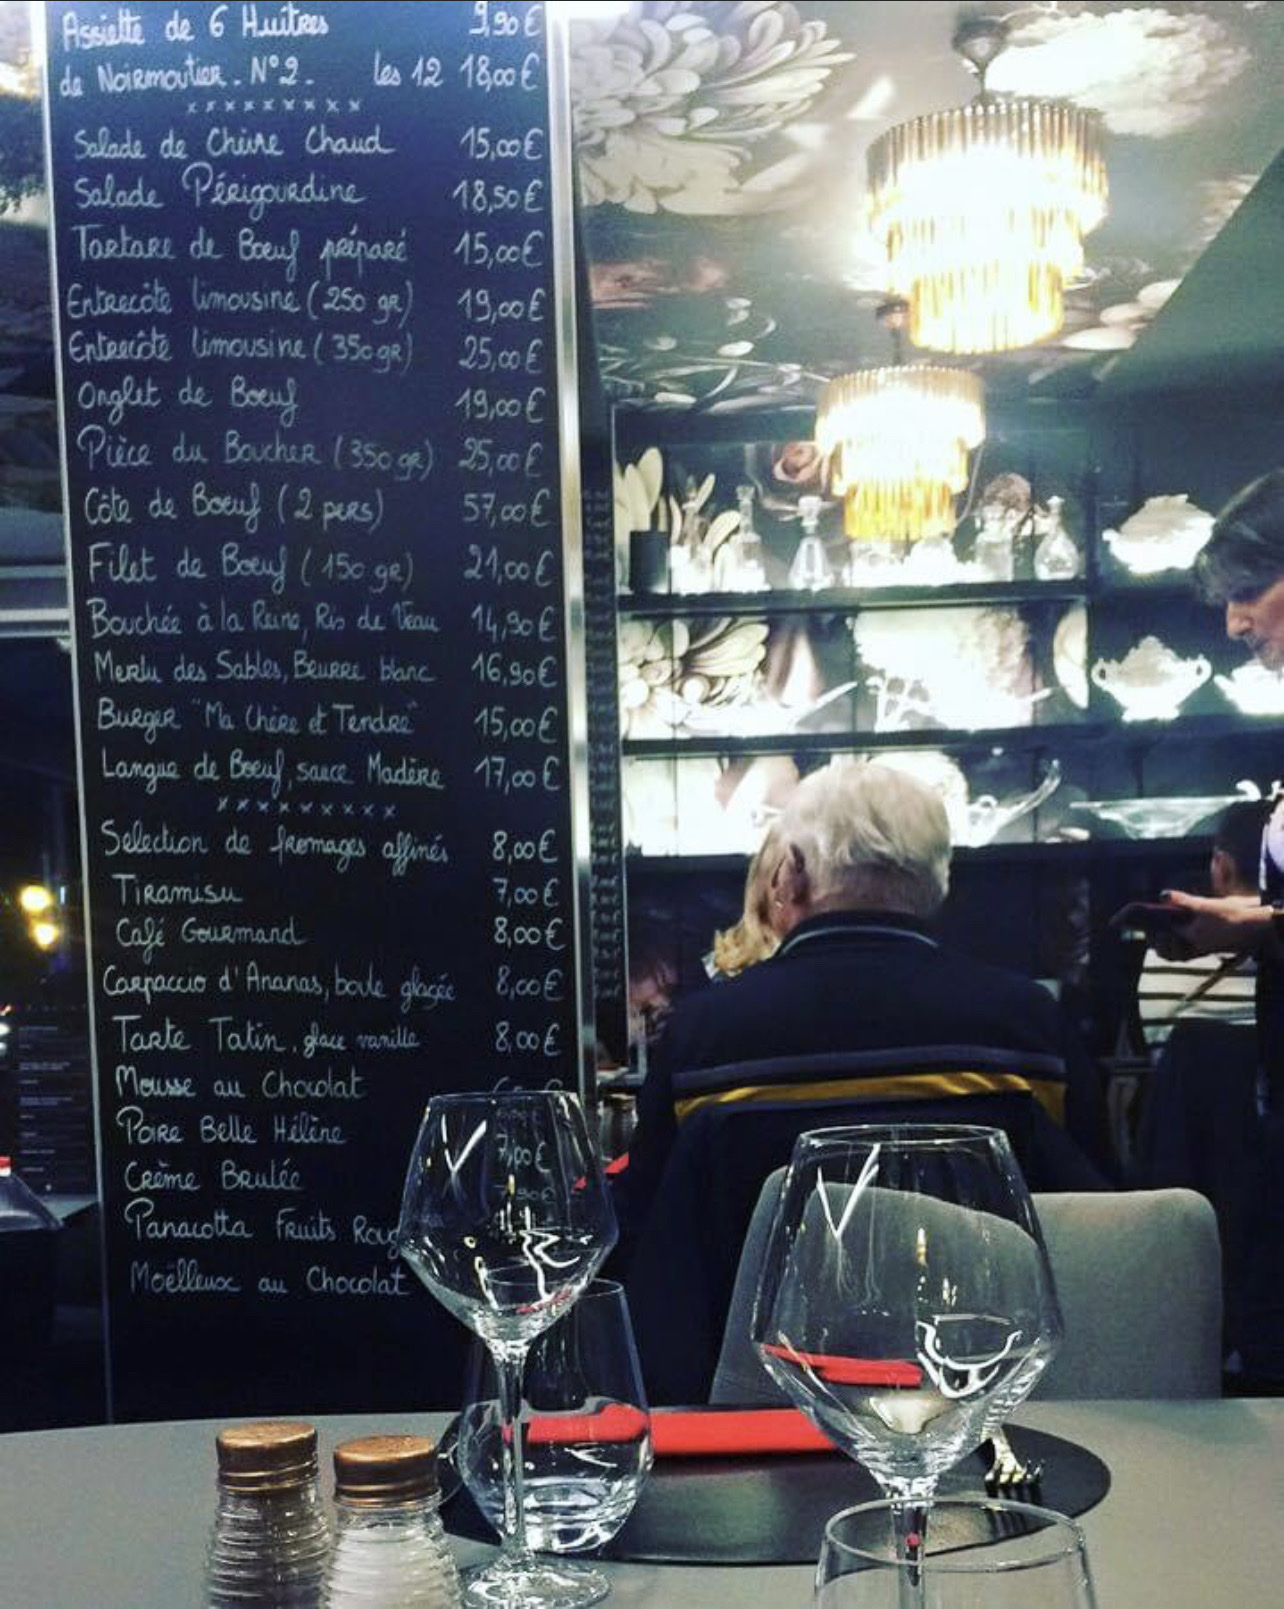 Assiette de 6 Huîtres 9,90 €
de Noirmoutier. N°2. les 12 18,00 €
x x x x x x x x x
Salade de Chèvre Chaud 15,00 €
Salade Périgourdine 18,50 €
Tartare de Boeuf préparé 15,00 €
Entrecôte limousine (250 gr) 19,00 €
Entrecôte limousine (350 gr) 25,00 €
Onglet de Boeuf 19,00 €
Pièce du Boucher (350 gr) 25,00 €
Côte de Boeuf (2 pers) 57,00 €
Filet de Boeuf (150 gr) 21,00 €
Bouchée à la Reine, Ris de Veau 14,90 €
Merlu des Sables, Beurre blanc 16,90 €
Burger "Ma Chère et Tendre" 15,00 €
Langue de Boeuf, sauce Madère 17,00 €
x x x x x x x x x
Selection de fromages affinés 8,00 €
Tiramisu 7,00 €
Café Gourmand 8,00 €
Carpaccio d'Ananas, boule glaçée 8,00 €
Tarte Tatin, glace vanille 8,00 €
Mousse au Chocolat
Poire Belle Hélène
Crème Brulée
Panacotta Fruits Roug
Moëlleux au Chocolat